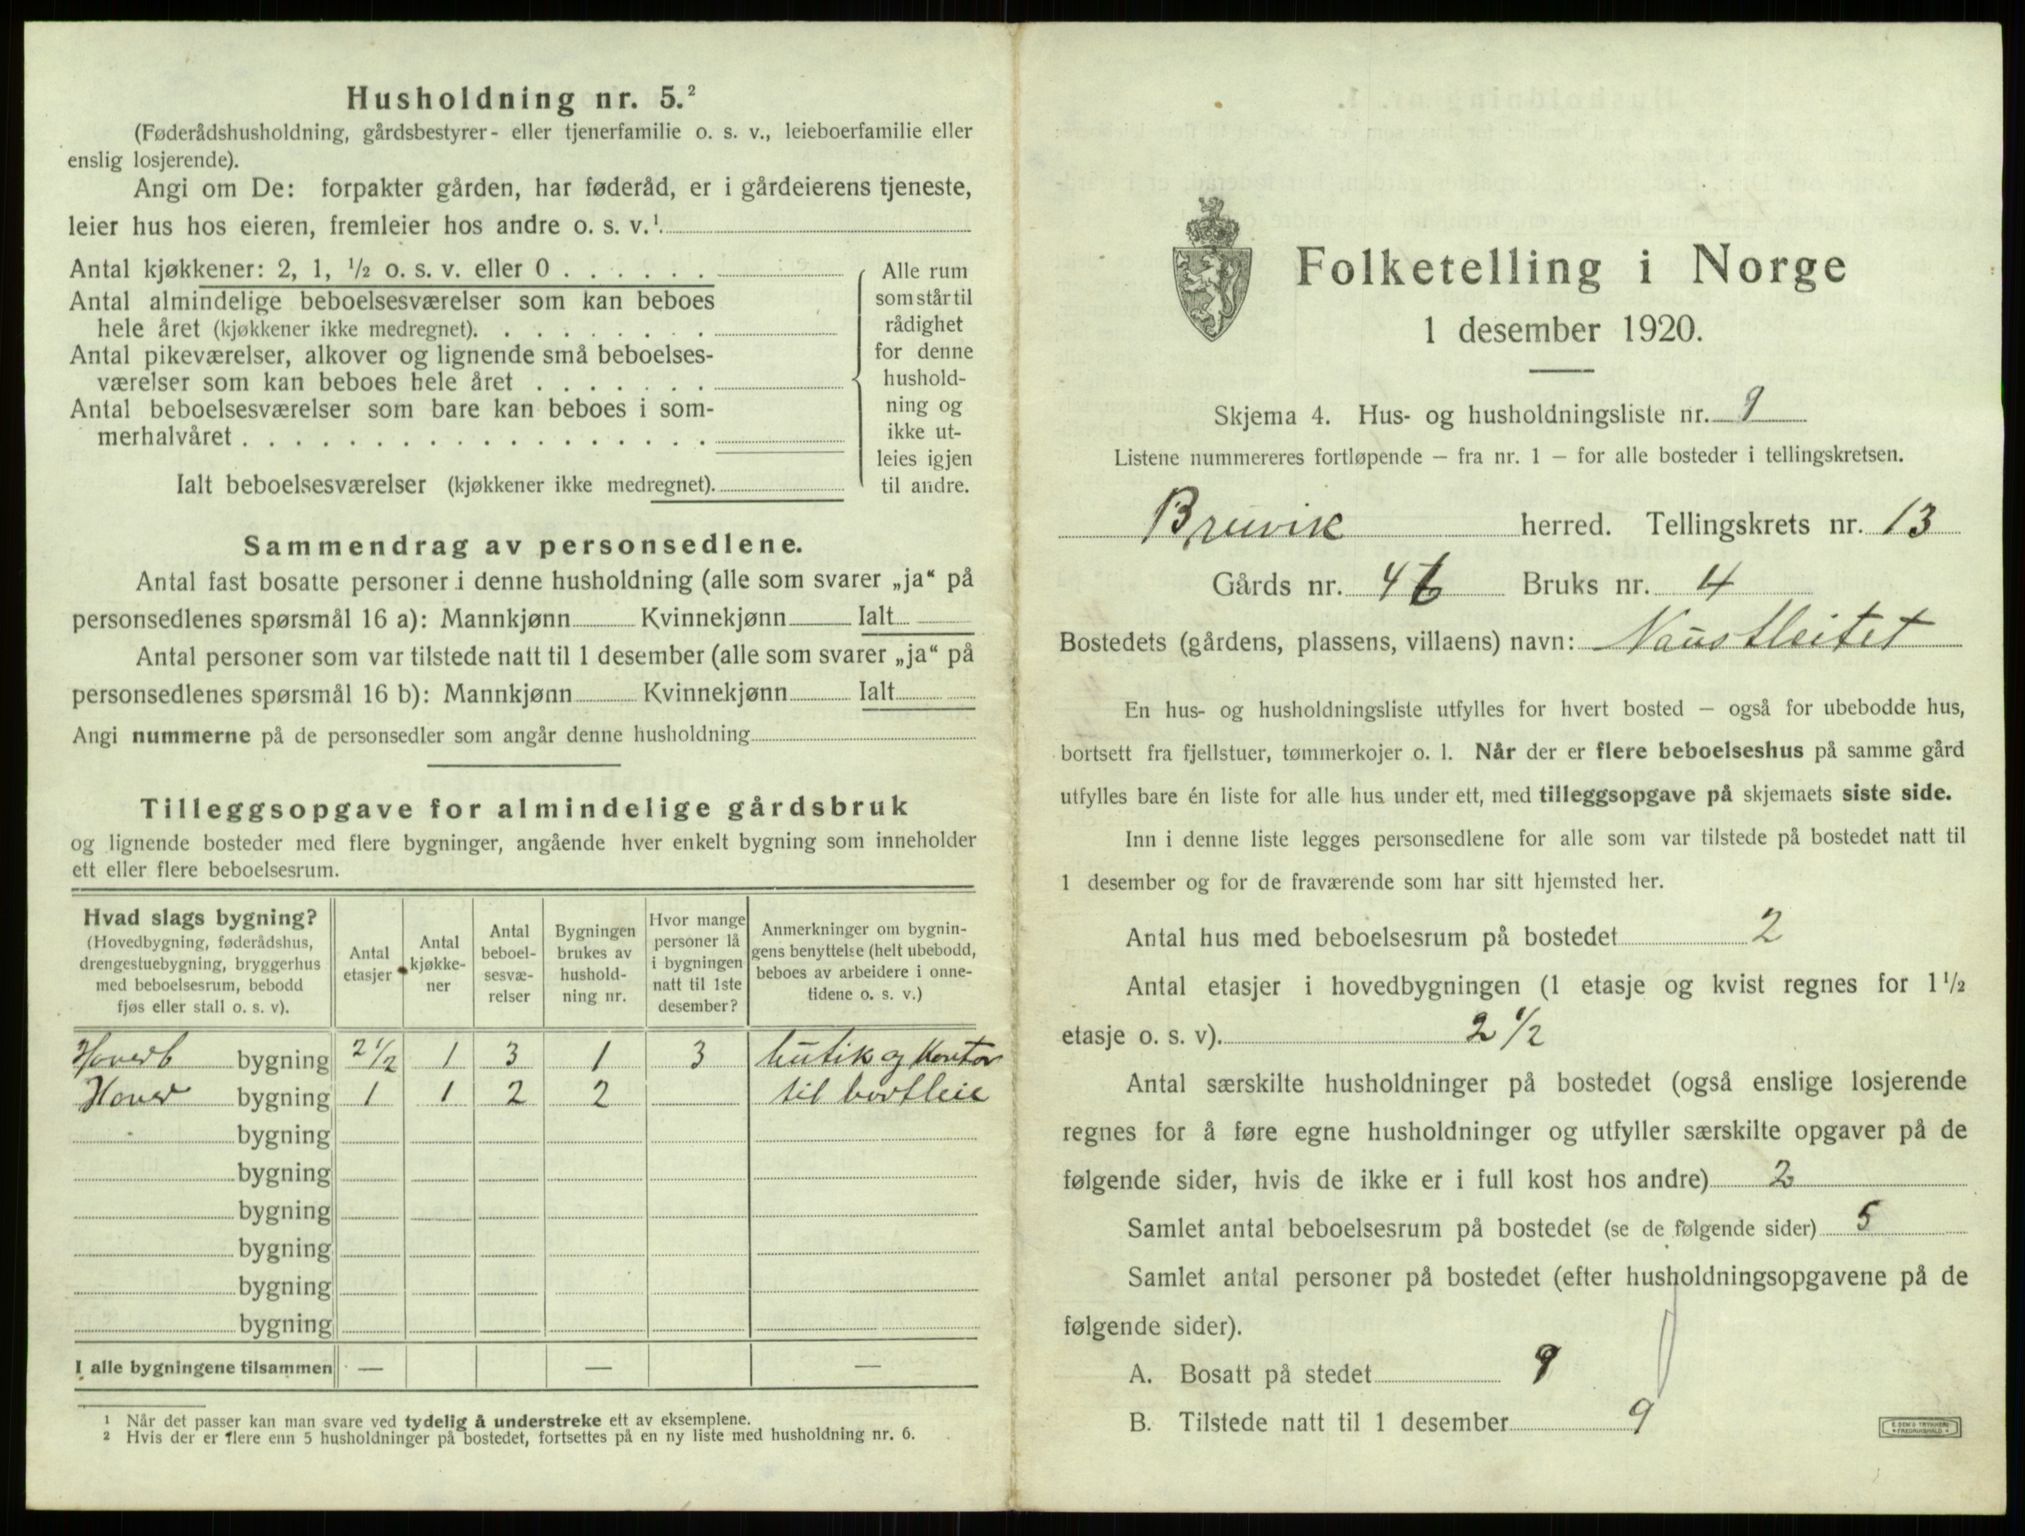 Husholdning nr. 5.²
(Føderådshusholdning, gårdsbestyrer- eller tjenerfamilie o. s. v., leieboerfamilie eller
enslig losjerende).
Angi om De: forpakter gården, har føderåd, er i gårdeierens tjeneste,
leier hus hos eieren, fremleier hos andre o. s. v.¹
Antal kjøkkener: 2, 1, ½ o. s. v. eller 0 . . . . . .
Antal almindelige beboelsesværelser som kan beboes
hele året (kjøkkener ikke medregnet). . . . . . . .
Antal pikeværelser, alkover og lignende små beboelses-
værelser som kan beboes hele året . . . . . . .
Antal beboelsesværelser som bare kan beboes i som-
merhalvåret . . . . . . . . . . . . . . . . . .
Ialt beboelsesværelser (kjøkkener ikke medregnet).
Alle rum
som står til
rådighet
for denne
hushold-
ning og
ikke ut-
leies igjen
til andre.
Sammendrag av personsedlene.
Antal fast bosatte personer i denne husholdning (alle som svarer „ja“ på
personsedlenes spørsmål 16 a): Mannkjønn Kvinnekjønn Ialt
Antal personer som var tilstede natt til 1 desember (alle som svarer „ja“ på
personsedlenes spørsmål 16 b): Mannkjønn Kvinnekjønn Ialt
Angi nummerne på de personsedler som angår denne husholdning
Tilleggsopgave for almindelige gårdsbruk
og lignende bosteder med flere bygninger, angående hver enkelt bygning som inneholder
ett eller flere beboelsesrum.
Hvad slags bygning?
(Hovedbygning, føderådshus,
drengestuebygning, bryggerhus
med beboelsesrum, bebodd
fjøs eller stall o. s. v).
Antal
etasjer
Antal
kjøkke-
ner
Antal
beboel-
sesvæ-
relser
Bygningen
brukes av
hushold-
ning nr.
Hvor mange
personer lå
i bygningen
natt til 1ste
desember?
Anmerkninger om bygnin-
gens benyttelse (helt ubebodd,
beboes av arbeidere i onne-
tidene o. s. v.)
Hoved bygning 2½ 1 3 1 3 butik og Kontor
Hoved bygning 1 1 2 2 til bortleie
bygning
bygning
bygning
bygning
bygning
bygning
I alle bygningene tilsammen — — —
¹ Når det passer kan man svare ved tydelig å understreke ett av eksemplene.
² Hvis der er flere enn 5 husholdninger på bostedet, fortsettes på en ny liste med husholdning nr. 6.
Folketelling i Norge
1 desember 1920.
Skjema 4. Hus- og husholdningsliste nr. 9
Listene nummereres fortløpende – fra nr. 1 – for alle bosteder i tellingskretsen.
Bruvik herred. Tellingskrets nr. 13
Gårds nr. 46 Bruks nr. 4
Bostedets (gårdens, plassens, villaens) navn: Naustleitet
En hus- og husholdningsliste utfylles for hvert bosted – også for ubebodde hus,
bortsett fra fjellstuer, tømmerkojer o. l. Når der er flere beboelseshus på samme gård
utfylles bare én liste for alle hus under ett, med tilleggsopgave på skjemaets siste side.
Inn i denne liste legges personsedlene for alle som var tilstede på bostedet natt til
1 desember og for de fraværende som har sitt hjemsted her.
Antal hus med beboelsesrum på bostedet 2
Antal etasjer i hovedbygningen (1 etasje og kvist regnes for 1½
etasje o. s. v). 2½
Antal særskilte husholdninger på bostedet (også enslige losjerende
regnes for å føre egne husholdninger og utfyller særskilte opgaver på de
følgende sider, hvis de ikke er i full kost hos andre) 2
Samlet antal beboelsesrum på bostedet (se de følgende sider) 5
Samlet antal personer på bostedet (efter husholdningsopgavene på de
følgende sider).
A. Bosatt på stedet 9
B. Tilstede natt til 1 desember 9